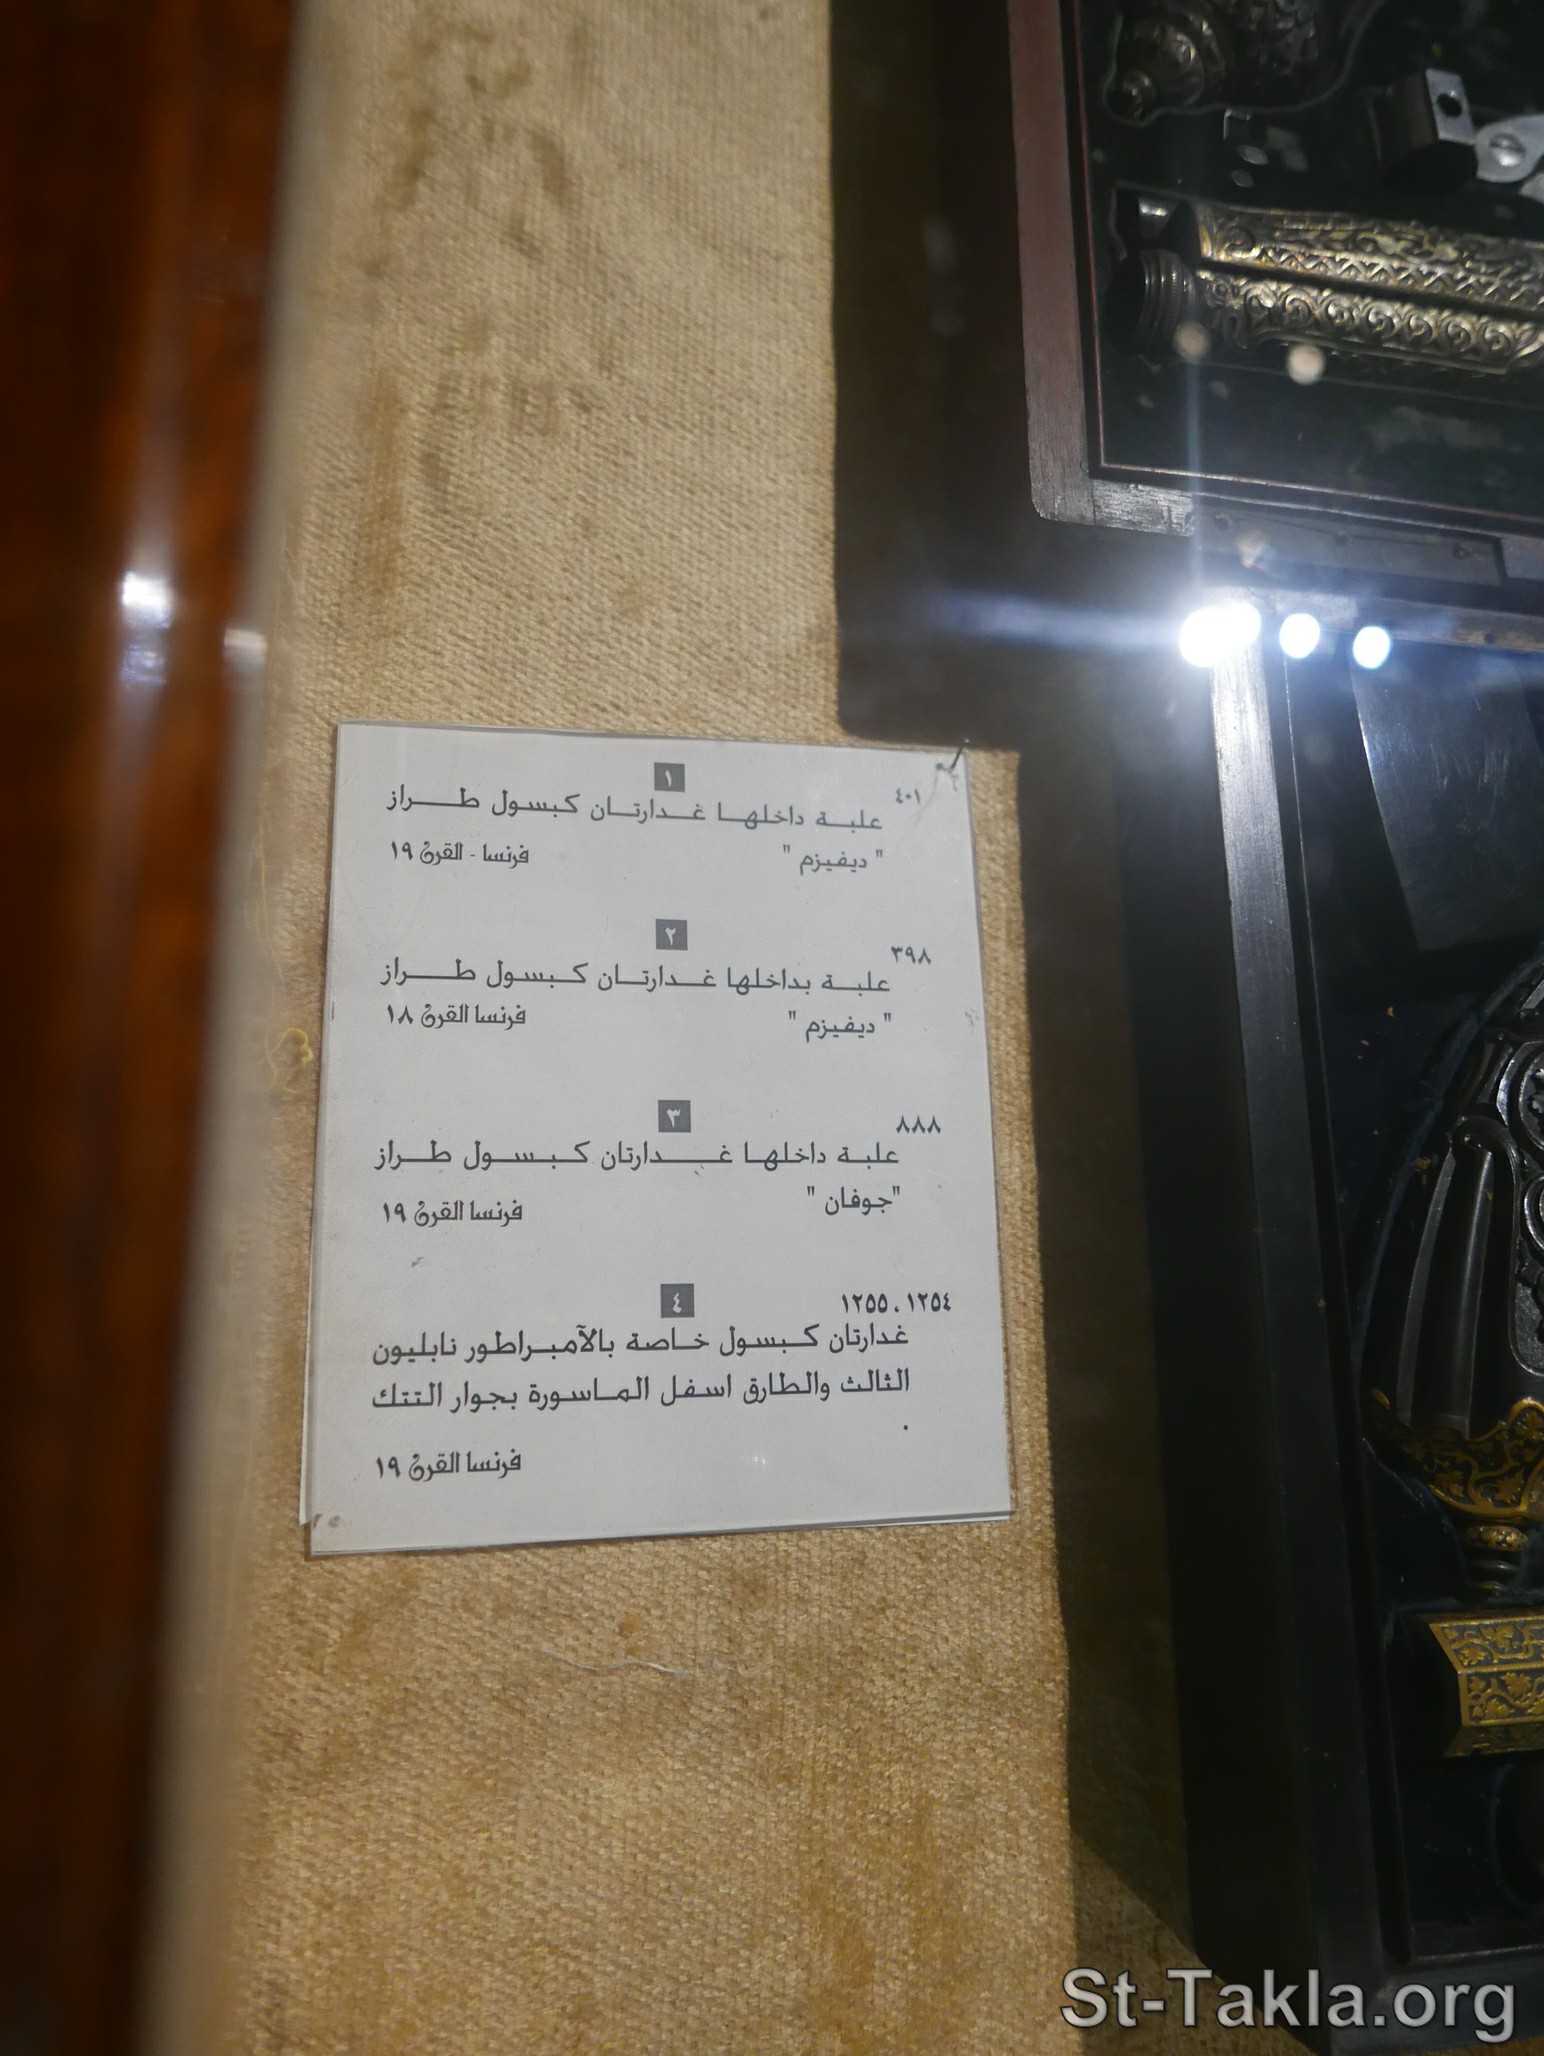 ١
٤٠١
علبة داخلها غدارتان كبسول طراز
" ديفيزم "
فرنسا - القرن ١٩
٢
٣٩٨
علبة بداخلها غدارتان كبسول طراز
" ديفيزم "
فرنسا القرن ١٨
٣
٨٨٨
علبة داخلها غدارتان كبسول طراز
"جوفان "
فرنسا القرن ١٩
٤
١٢٥٤ ، ١٢٥٥
غدارتان كبسول خاصة بالآمبراطور نابليون
الثالث والطارق اسفل الماسورة بجوار التتك
.
فرنسا القرن ١٩
St-Takla.org